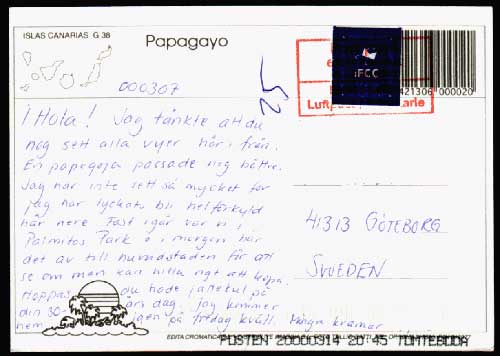 ISLAS CANARIAS G 38
Papagayo
000307
25
¡Hola! Jag tänkte att du
nog sett alla vyer här i från.
En papegoja passade nog bättre.
Jag har inte sett så mycket för
jag lyckats bli helförkyld
här nere. Fast igår var vi i
Palmitos Park o i morgon bär
det av till huvudstaden för att
se om man kan hitta ngt att köpa.
Hoppas du hade jättekul på
din 30-års dag. Jag kommer
hem igen på fredag kväll. Många kramar
FCC
421306 000020
Luftpost
41313 GÖTEBORG
SWEDEN
EDITA CROMATICA
POSTEN 20000314 20 45 TOMTEBODA